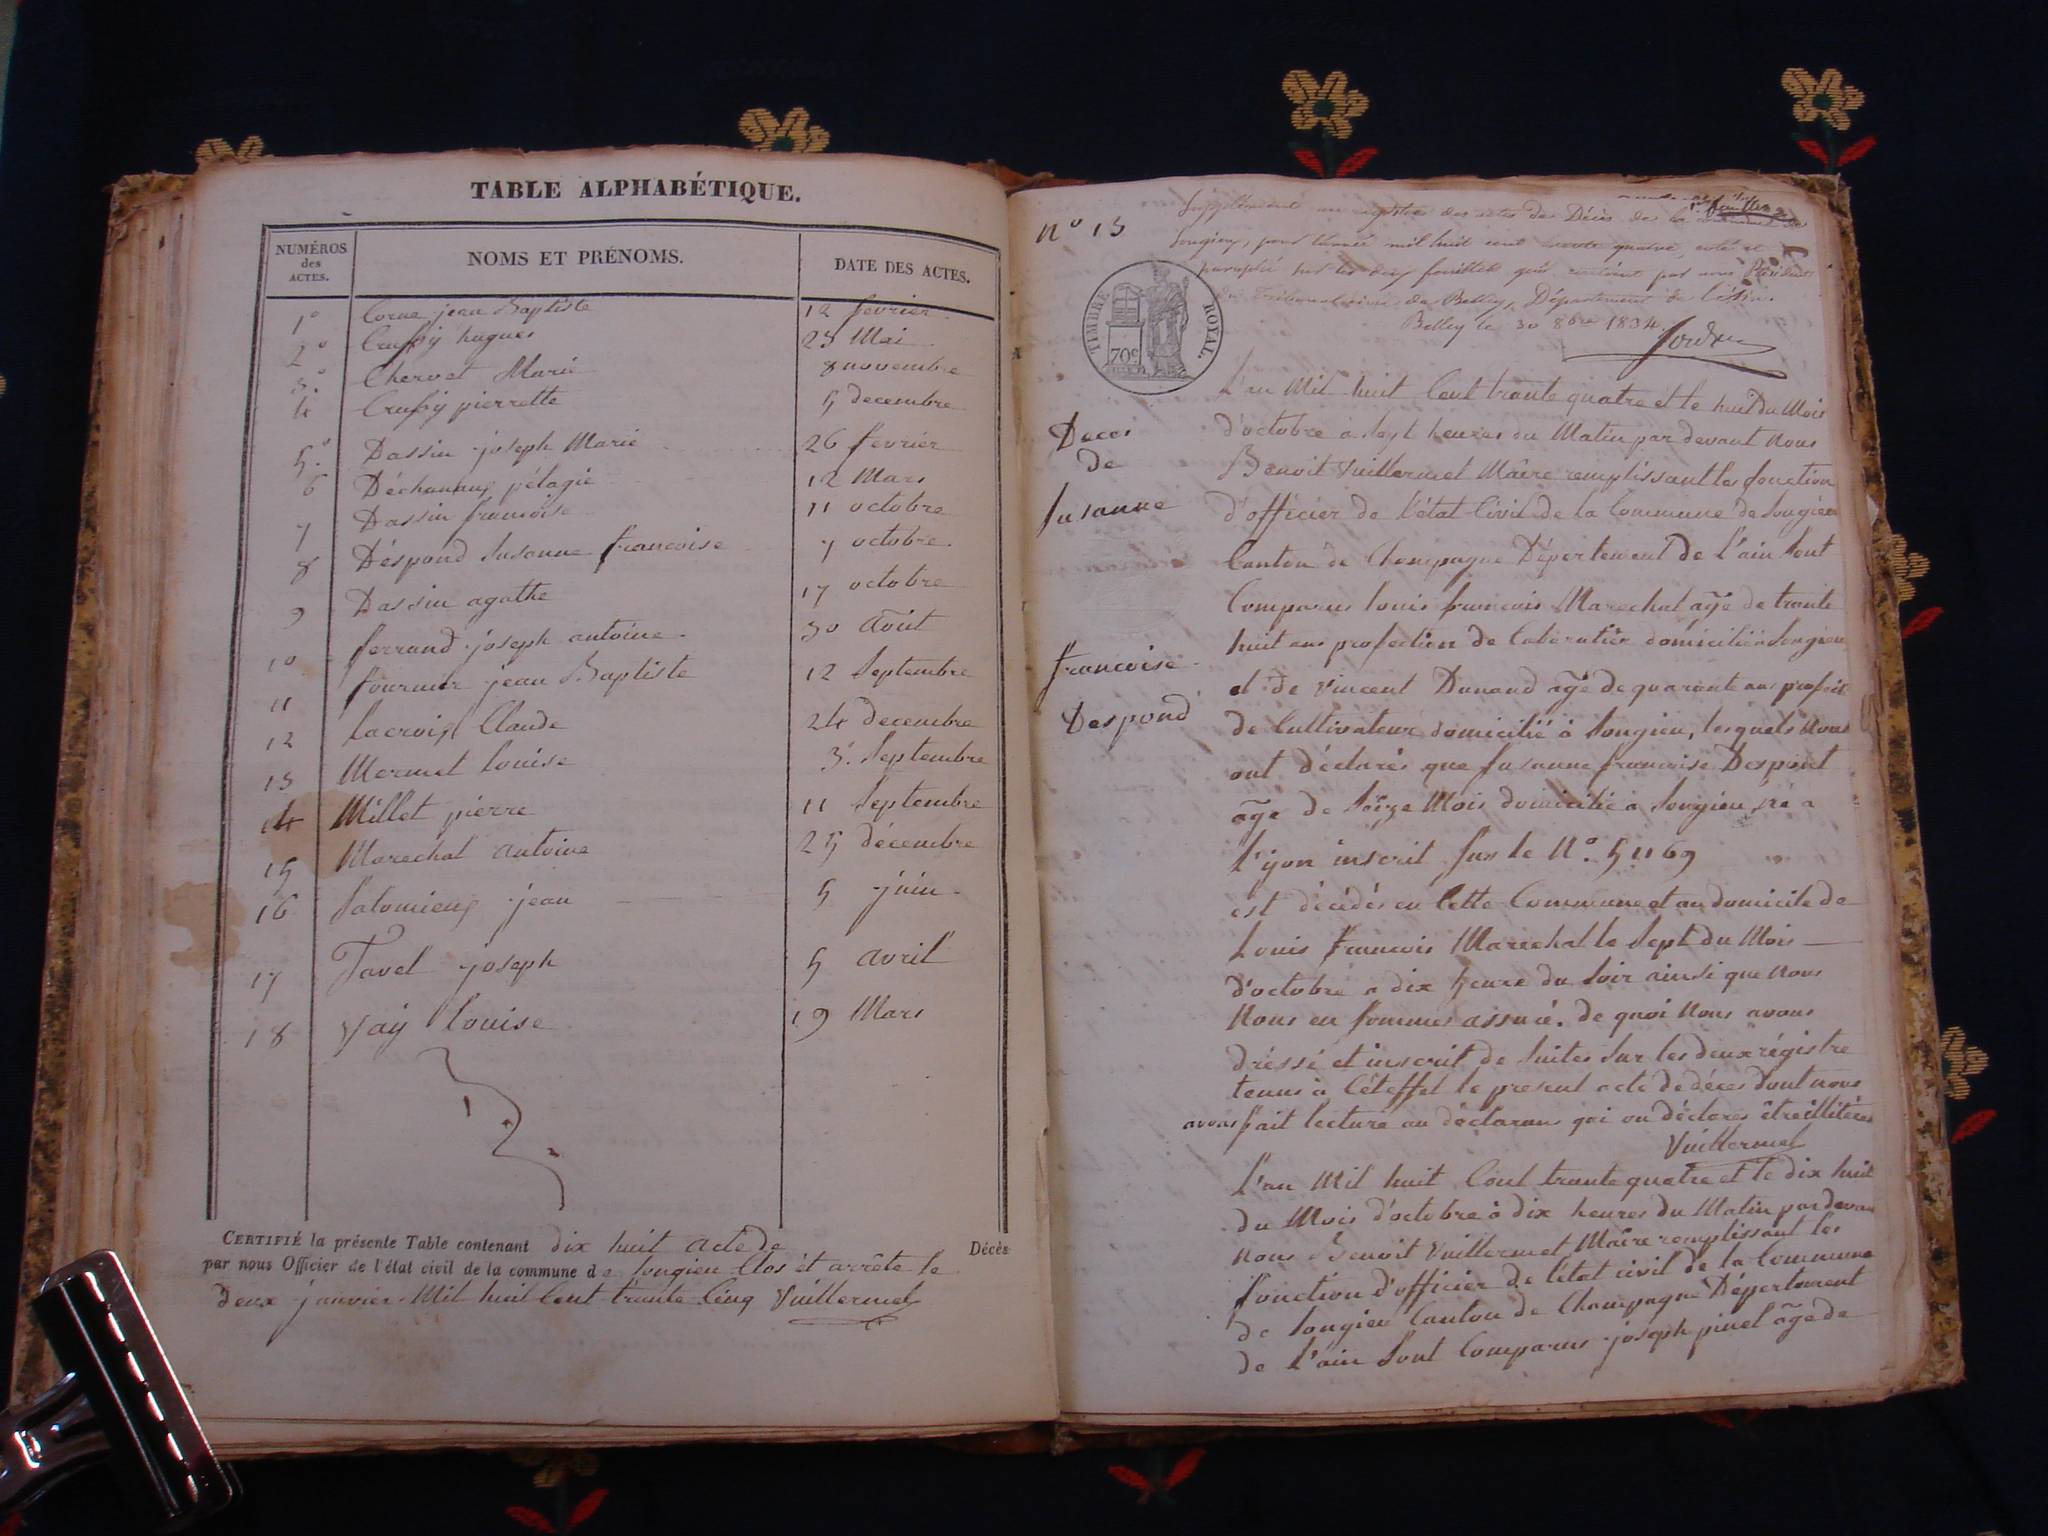 TABLE ALPHABÉTIQUE.
NUMÉROS des ACTES.
NOMS ET PRÉNOMS.
DATE DES ACTES.
1º Corne jean Baptiste 12 fevrier
2º Crussy hugues 25 Mai
3º Chervet Marie 8 novembre
4 Crussy pierrette 5 decembre
5º Dassin joseph Marie 26 fevrier
6 pélagie 12 Mars
7 Dassin francoise 11 octobre
8 Déspond Susanne francoise 7 octobre
9 Dassin agathe 17 octobre
10 ferrand joseph antoine 30 Août
11 fournier jean Baptiste 12 Septembre
12 Lacroix Claude 24 decembre
13 Mermet louise 3 Septembre
14 Millet pierre 11 Septembre
15 Marechal antoine 25 décembre
16 jean 5 juin
17 Tavel joseph 5 avril
18 Vay louise 19 Mars
CERTIFIÉ la présente Table contenant dix huit acte de Décès
par nous Officier de l'état civil de la commune de Songieu Clos et arrête le
deux janvier Mil huil Cent trante Cinq Vuillermet
nº 13
Supplément au registre des actes de Décès de la commune de
Songieu, pour l'année mil huit cent trente quatre, coté et
paraphé sur les deux feuillets par nous Président
du Tribunal civil de Belley, Département de l'Ain.
Belley le 30 8bre 1834.
TIMBRE ROYAL.
70c
L'an Mil huit Cent trante quatre et le huit Du Mois
Deces
d'octobre a Sept heures du Matin par devant nous
de
Benoit Vuillermet Mâire remplissant les fonction
Susanne
d'officier de l'état Civil de la Commune de Songieu
Canton de Champagne Dépertement de l'ain Sont
Comparus louis francois Marechal agé de trante
huit ans profection de laboratier domicilié à Songieu
francoise
et de Vincent Dunand agé de quarante ans
Despond
de Cultivateur domicilié à Songieu, lesquels Nous
ont déclarés que Susanne francoise Despont
age de Seize Mois domicilié a Songieu né a
L'yon inscrit Sur le Nº. 51169
est décédés en Cette Commune et au domicile de
Louis francois Marechal le Sept du Mois
d'octobre a dix heure du Soir ainsi que nous
Nous en Sommes assuré. de quoi Nous avons
dréssé et inscrit de Suites Sur les deux régistre
tenus à Cét effet le present acte de déces dont nous
avons fait lecture au déclarans qui on déclares être illitéres
Vuillermet
L'an Mil huit Cent trante quatre et le dix huit
du Mois d'octobre à dix heures du Matin par devan
nous Benoit Vuillermet Maire remplissant les
fonction d'officier de l'état civil de la Commune
de Songieu Canton de Champagne Dépertement
de l'ain Sont Comparus joseph pinel âge de